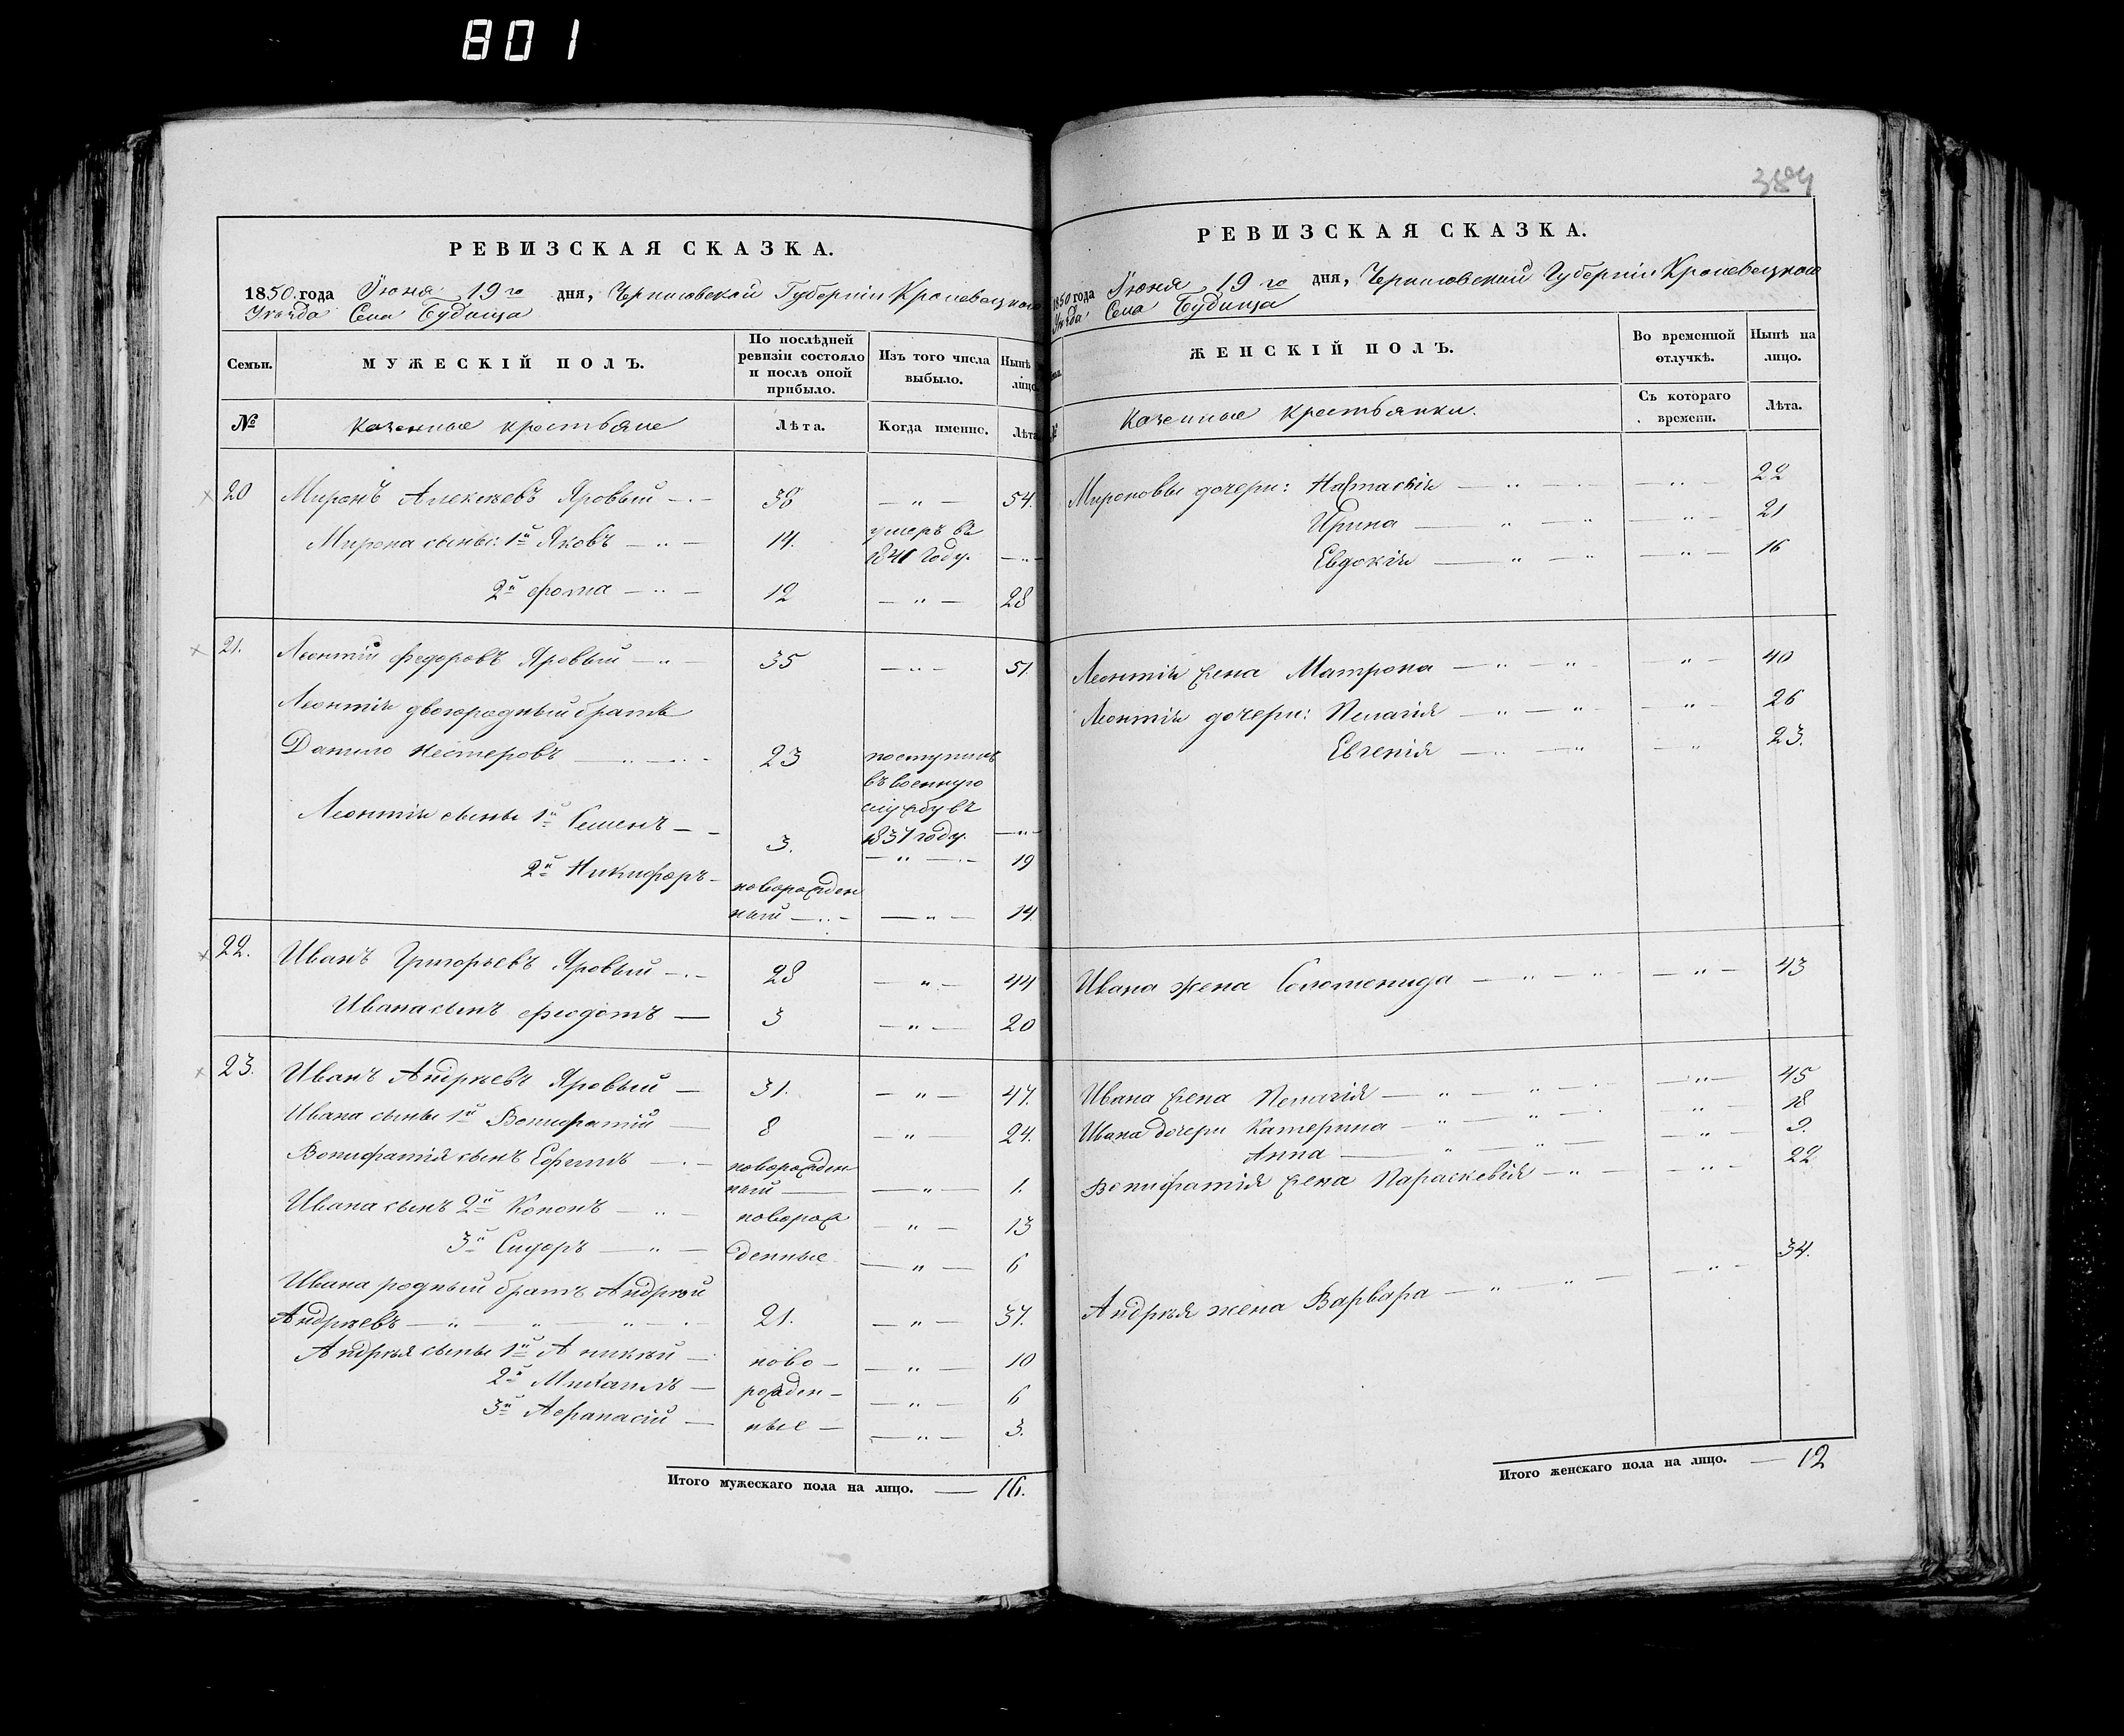 801
384
РЕВИЗСКАЯ СКАЗКА.
1850 года Іюня 19го дня, Черниговской Губерніи Кролевецкого
Уѣзда Села Будища
Семьи. МУЖЕСКІЙ ПОЛЪ. По послѣдней ревизіи состояло и послѣ оной прибыло. Изъ того числа выбыло. Нынѣ лицо
№ Казенные крестьяне Лѣта. Когда именно. Лѣта
20 Миронъ Алексѣевъ Яровый — 38 — " — 54.
Мирона сыны: 1й Яковъ — 14. умеръ въ
1841 году. — " —
2й Фома — 12 — " — 28
21. Леонтій Федоровъ Яровый — 35 — " — 51.
Леонтія двоюродный братъ
Данило Нестеровъ — 23 поступилъ
въ военную
службу въ
1837 году. — " —
Леонтія сыны 1й Семенъ — 3. — " — 19
2й Никифоръ — новорожден
ный — " — 14.
22. Иванъ Григорьевъ Яровый — 28 — " — 44
Ивана сынъ Феодотъ — 3 — " — 20
23. Иванъ Андрѣевъ Яровый — 31. — " — 47.
Ивана сыны 1й Вонифатій — 8 — " — 24.
Вонифатія сынъ Ефимъ — новорожден
ный — " — 1.
Ивана сынъ 2й Кононъ — новорож — " — 13
3й Сидоръ — денные — " — 6
Ивана родный братъ Андрѣй
Андрѣевъ — 21. — " — 37.
Андрѣя сыны 1й Аникѣй — ново — " — 10
2й Михаилъ — рожден — " — 6
3й Афанасій — ные — " — 3.
Итого мужескаго пола на лицо. — 16.
РЕВИЗСКАЯ СКАЗКА.
1850 года Іюня 19го дня, Черниговской Губерніи Кролевецкого
Уѣзда Села Будища
ЖЕНСКІЙ ПОЛЪ. Во временной отлучкѣ. Нынѣ на лицо.
№ Казенные крестьянки. Съ котораго времени. Лѣта.
Мироновы дочери: Настасія — " — 22
Ирина — " — 21
Евдокія — " — 16
Леонтія жена Матрона — " — 40
Леонтія дочери: Пелагія — " — 26
Евгенія — " — 23.
Ивана жена Соломонида — " — 43
Ивана жена Пелагія — " — 45
Ивана дочери Катерина — " — 18
Анна — " — 9.
Вонифатія жена Параскевія — " — 22
Андрѣя жена Варвара — " — 34.
Итого женскаго пола на лицо. — 12